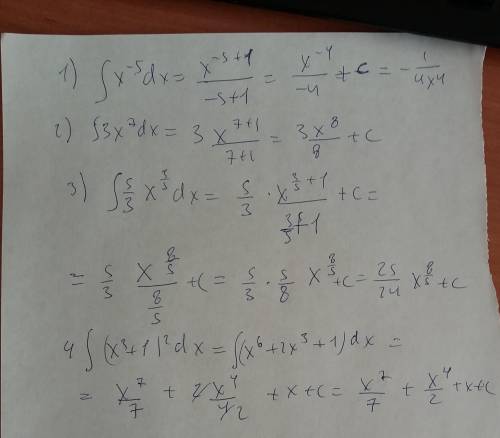 1) ∫x⁻⁵dx = x⁻⁵⁺¹/-5+1 = x⁻⁴/-4 + c = -1/4x4
2) ∫3x⁷dx = 3 x⁷⁺¹/7+1 = 3x⁸/8 + c
3) ∫5/3 x^3/5 dx = 5/3 · x^(3/5+1)/(3/5+1) + c =
= 5/3 x^8/5 / 8/5 + c = 5/3 · 5/8 x^8/5 + c = 25/24 x^8/5 + c
4 ∫(x³+1)²dx = ∫(x⁶+2x³+1)dx =
= x⁷/7 + 2x⁴/42 + x + c = x⁷/7 + x⁴/2 + x + c